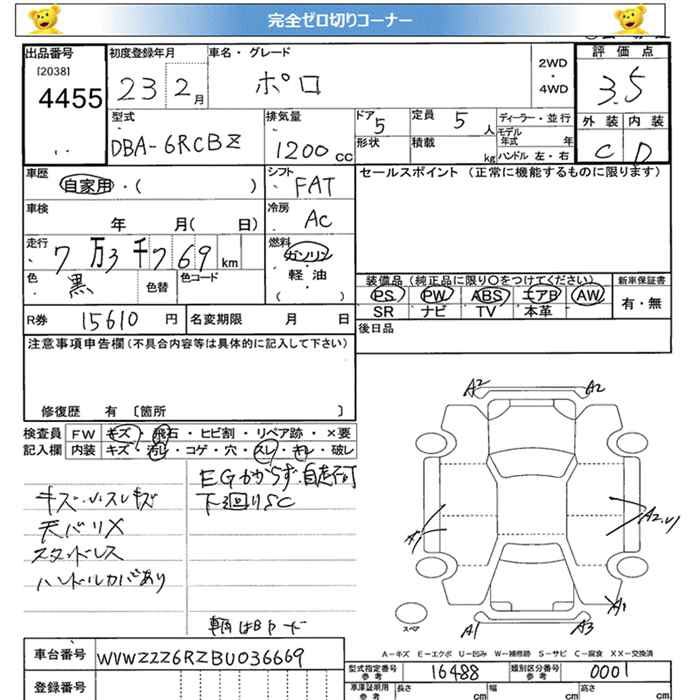 完全ゼロ切りコーナー
出品番号
[2038]
4455
初度登録年月
23 2月
車名・グレード
ポロ
2WD
・
4WD
評価点
3.5
外装 内装
C D
型式
DBA-6RCBZ
排気量
1200cc
ドア
5
定員
5人
形状
積載
kg
ディーラー・並行
モデル年式 年
ハンドル 左・右
車歴
自家用・( )
シフト
FAT
セールスポイント (正常に機能するものに限ります)
車検
年 月( 日)
冷房
AC
走行
7万3千769km
燃料
ガソリン
軽・油
( )
色
黒
色替
色コード
装備品(純正品に限り○をつけてください)
PS PW ABS エアB AW
SR ナビ TV 本革
新車保証書
有・無
R券 15610円
名変期限 月 日
後日品
注意事項申告欄(不具合内容等は具体的に記入して下さい)
修復歴 有 〔箇所 〕
検査員記入欄
FW キズ・飛石・ヒビ割・リペア跡・×要
内装 キズ・汚レ・コゲ・穴・スレ・キレ・破レ
EGかからず.自走不可
下廻りSC
キズ・小スレキズ
天バリX
スタッドレス
ハンドルカバあり
車輌はBヤード
A2 A2
A1
A2.U
A1
スペア
A1 A3
A-キズ E-エクボ U-凹み W-補修跡 S-サビ C-腐食 XX-交換済
車台番号 WVWZZZ6RZBU036669
型式指定番号参考 16488
類別区分番号参考 0001
登録番号
車庫証明用参考
長さ cm
幅 cm
高さ cm